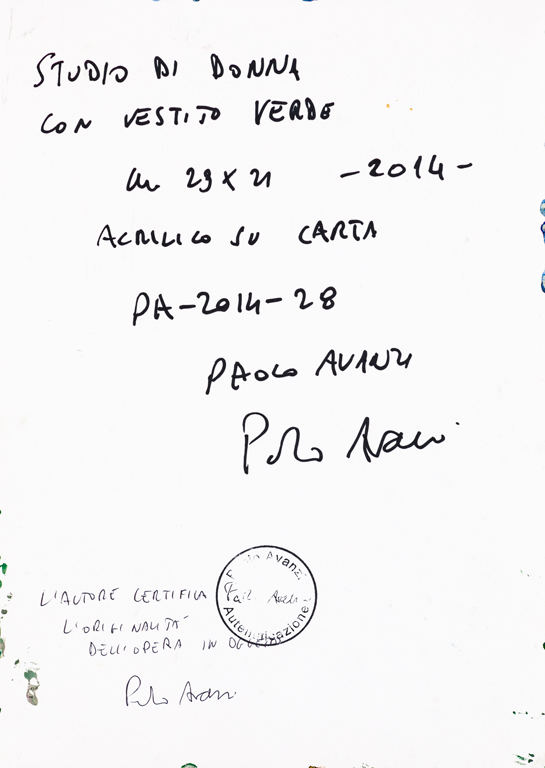 STUDIO DI DONNA
CON VESTITO VERDE
cm 29 X 21 - 2014 -
ACRILICO SU CARTA
PA-2014-28
PAOLO AVANZI
Paolo Avanzi
L'AUTORE CERTIFICA
L'ORIGINALITÀ
DELL'OPERA IN OGGETTO
Paolo Avanzi
Paolo Avanzi
Autenticazione
Paolo Avanzi